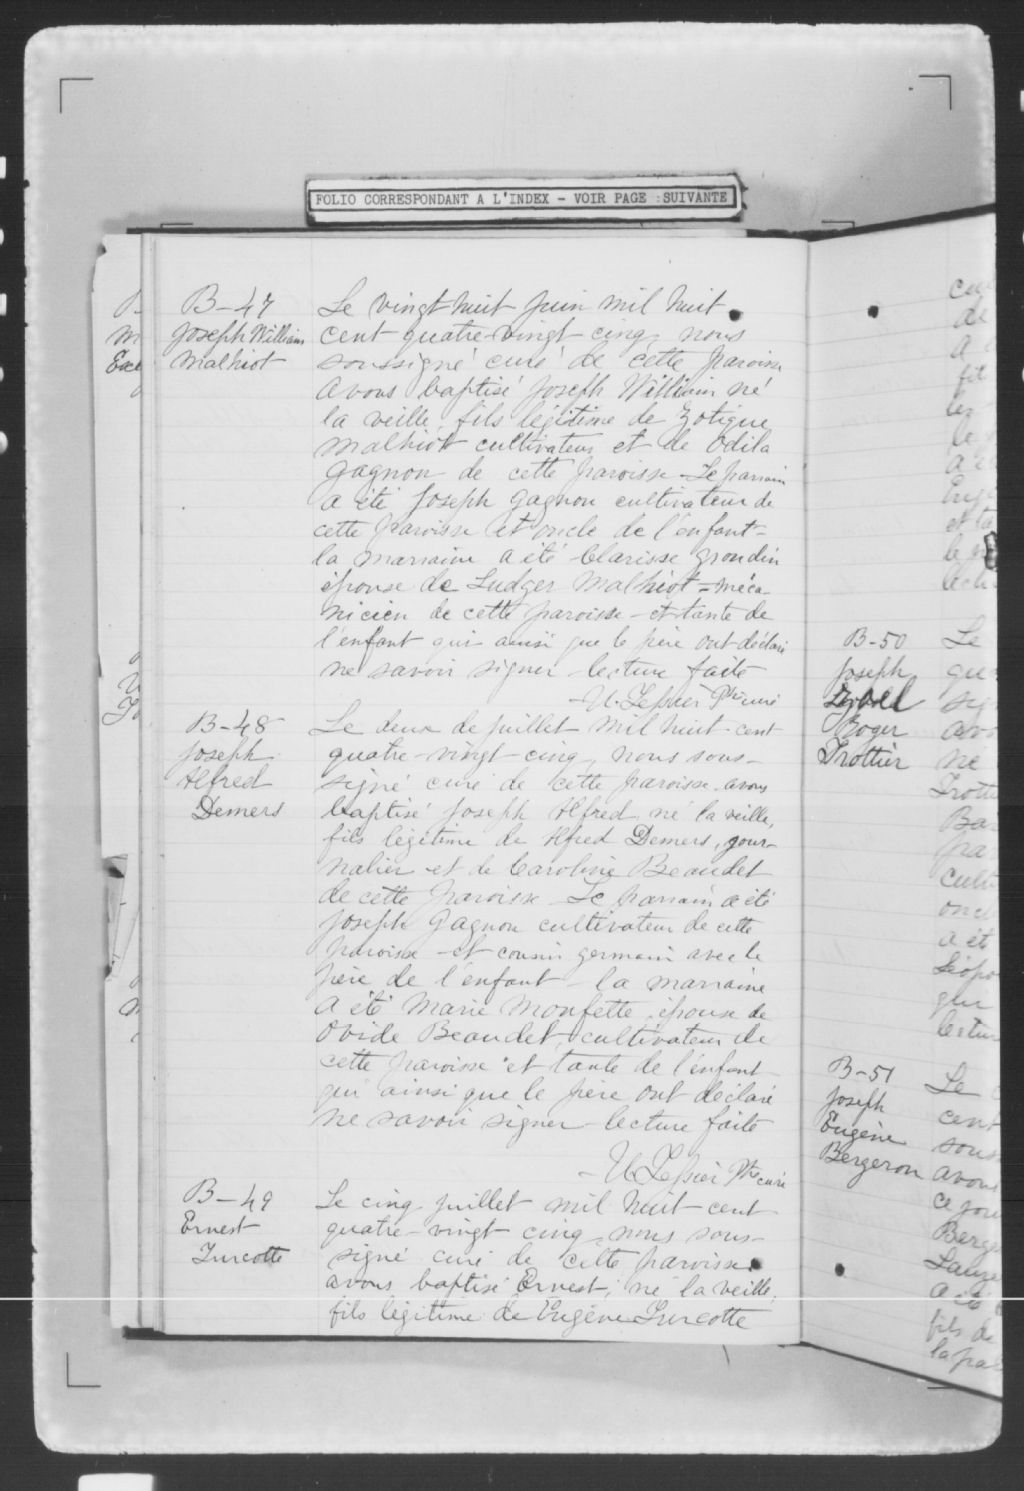 FOLIO CORRESPONDANT A L'INDEX - VOIR PAGE :SUIVANTE
B-47
Joseph William
Malhiot
Le vingt huit Juin mil huit
cent quatre-vingt cinq, nous
soussigné curé de cette paroisse
avons baptisé Joseph William né
la veille, fils légitime de Zotique
Malhiot cultivateur et de Odila
Gagnon de cette paroisse - Le parrain
a été Joseph Gagnon cultivateur de
cette paroisse et oncle de l'enfant -
la marraine a été Clarisse Grondin
épouse de Ludger Malhiot = méca-
nicien de cette paroisse - et tante de
l'enfant qui ainsi que le père ont déclaré
ne savoir signer - lecture faite
Ptre curé
B-48
Joseph
Alfred
Demers
Le deux de juillet mil huit-cent
quatre-vingt-cinq, nous sous-
signé curé de cette paroisse avons
baptisé Joseph Alfred, né la veille,
fils légitime de Alfred Demers, jour-
nalier et de Caroline Beaudet
de cette paroisse - Le parrain a été
Joseph Gagnon cultivateur de cette
paroisse - et cousin germain avec le
père de l'enfant - la marraine
a été Marie Monfette, épouse de
Ovide Beaudet, cultivateur de
cette paroisse et tante de l'enfant
qui ainsi que le père ont déclaré
ne savoir signer - lecture faite
Ptre curé
B-49
Ernest
Turcotte
Le cinq juillet mil huit-cent
quatre-vingt cinq, nous sous-
signé curé de cette paroisse
avons baptisé Ernest, né la veille,
fils légitime de Eugène Turcotte
B-50
Joseph
Roger
Trottier
B-51
Joseph
Eugène
Bergeron
Le
cent
sous
avons
ce jour